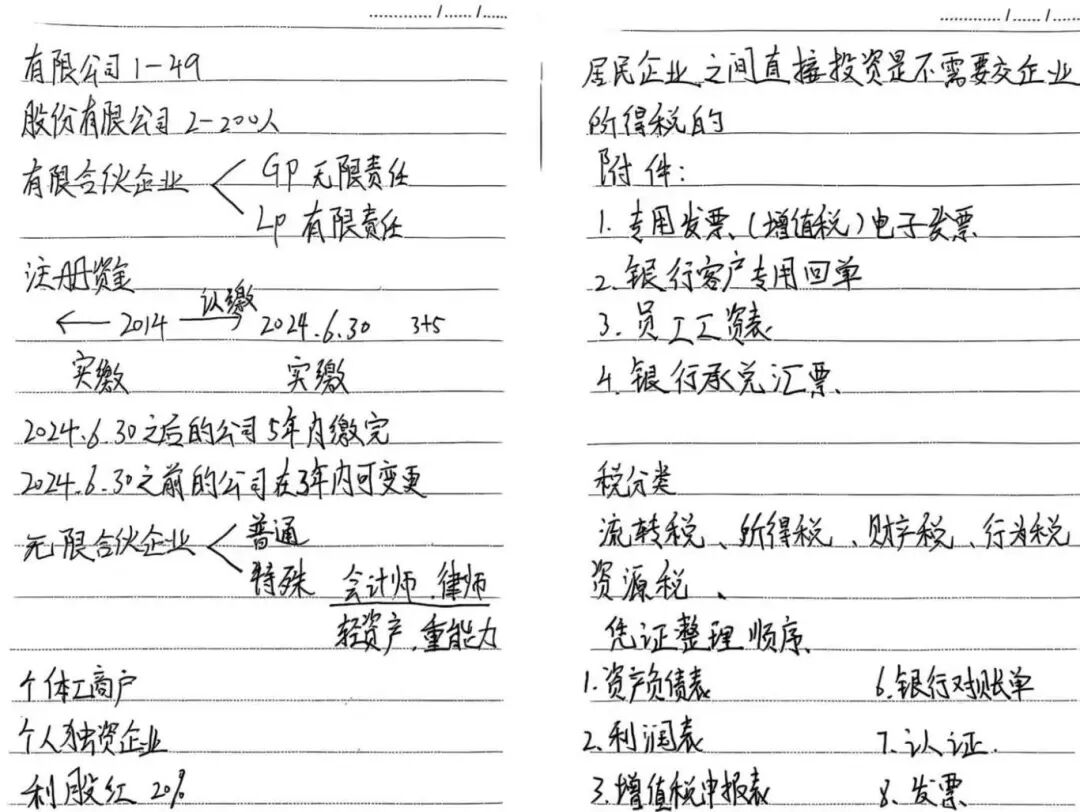 有限公司 1-49
股份有限公司 2-200人
有限合伙企业
GP 无限责任
LP 有限责任
注册资金
认缴
← 2014 → 2024.6.30 3+5
实缴 实缴
2024.6.30之后的公司5年内缴完
2024.6.30之前的公司在3年内可变更
无限合伙企业
普通
特殊 会计师、律师
轻资产,重能力
个体工商户
个人独资企业
利股红 20%
居民企业之间直接投资是不需要交企业
所得税的
附件:
1. 专用发票、(增值税)电子发票
2. 银行客户专用回单
3. 员工工资表
4. 银行承兑汇票、
税分类
流转税、所得税、财产税、行为税
资源税、
凭证整理顺序、
1. 资产负债表 6. 银行对账单
2. 利润表 7. 认证.
3. 增值税申报表 8. 发票